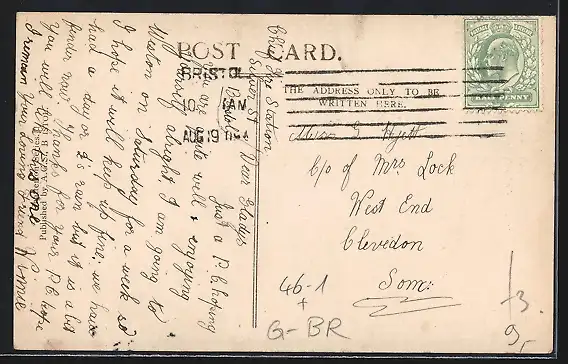 POST CARD.
THE ADDRESS ONLY TO BE
WRITTEN HERE.
BRISTOL
AUG 19
HALF PENNY
Chief Fire Station
Silver St
Bristol
Dear Gladys
Just a P.C hoping
you are quite well & enjoying
yourself alright. I am going to
Weston on Saturday for a week so
I hope it will keep up fine, we have
had a day or 2's rain but it is a bit
finer now. Thanks for your P.C hope
You will like this one
I remain Your Loving Friend
Miss G Hyett
C/o of Mrs Lock
West End
Clevedon
Som:
46-1
+
G-BR
Published by